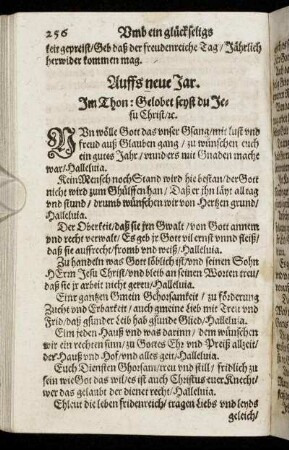 256 Vmb ein glückseligs
keit gepreist/Geb daß der freudenreiche Tag/Jährlich
herwider kommen mag.
Auffs neue Jar.
Im Thon: Gelobet seyst du Je-
su Christ/ꝛc.
NVn wölle Gott das vnser Gsang/mit lust vnd
freud auß Glauben gang/zu wünschen euch
ein gutes Jahr/vnd ers mit Gnaden mache
war/Halleluia.
Kein Mensch noch Stand wird hie bestan/der Gott
nicht wird zum Ghülffen han/Daß er jhn läyt all tag
vnd stund/drumb wünschen wir von Hertzen grund/
Halleluia.
Der Oberkeit/daß sie jren Gwalt/von Gott annem
vnd recht verwalt/Es geb jr Gott vil ernst vnnd fleiß/
daß sie auffrecht/fromb vnd weiß/Halleluia.
Zu handeln was Gott löblich ist/vnd seinen Sohn
HErrn Jesu Christ/vnd bleib an seinen Worten treu/
daß sie jr arbeit nicht gereu/Halleluia.
Eine gantzen Gmein Gehorsamkeit/zu förderung
Zucht vnd Erbarkeit/auch gmeine Lieb mit Treu vnd
Frid/daß gsunder Leib hab gsunde Glied/Halleluia.
Ein jeden Hauß vnd was darinn/dem wünschen
wir ein rechten sinn/zu Gottes Ehr vnd Preiß allzeit/
der Hauß vnd Hof/vnd alles geit/Halleluia.
Euch Diensten Ghorsam/treu vnd still/fridlich zu
sein wie Gott das wil/es ist auch Christus euer Knecht/
wer das gelaubt der dienet recht/Halleluia.
Ehleut die leben fridenreich/tragen Liebs vnd leyds
geleich/